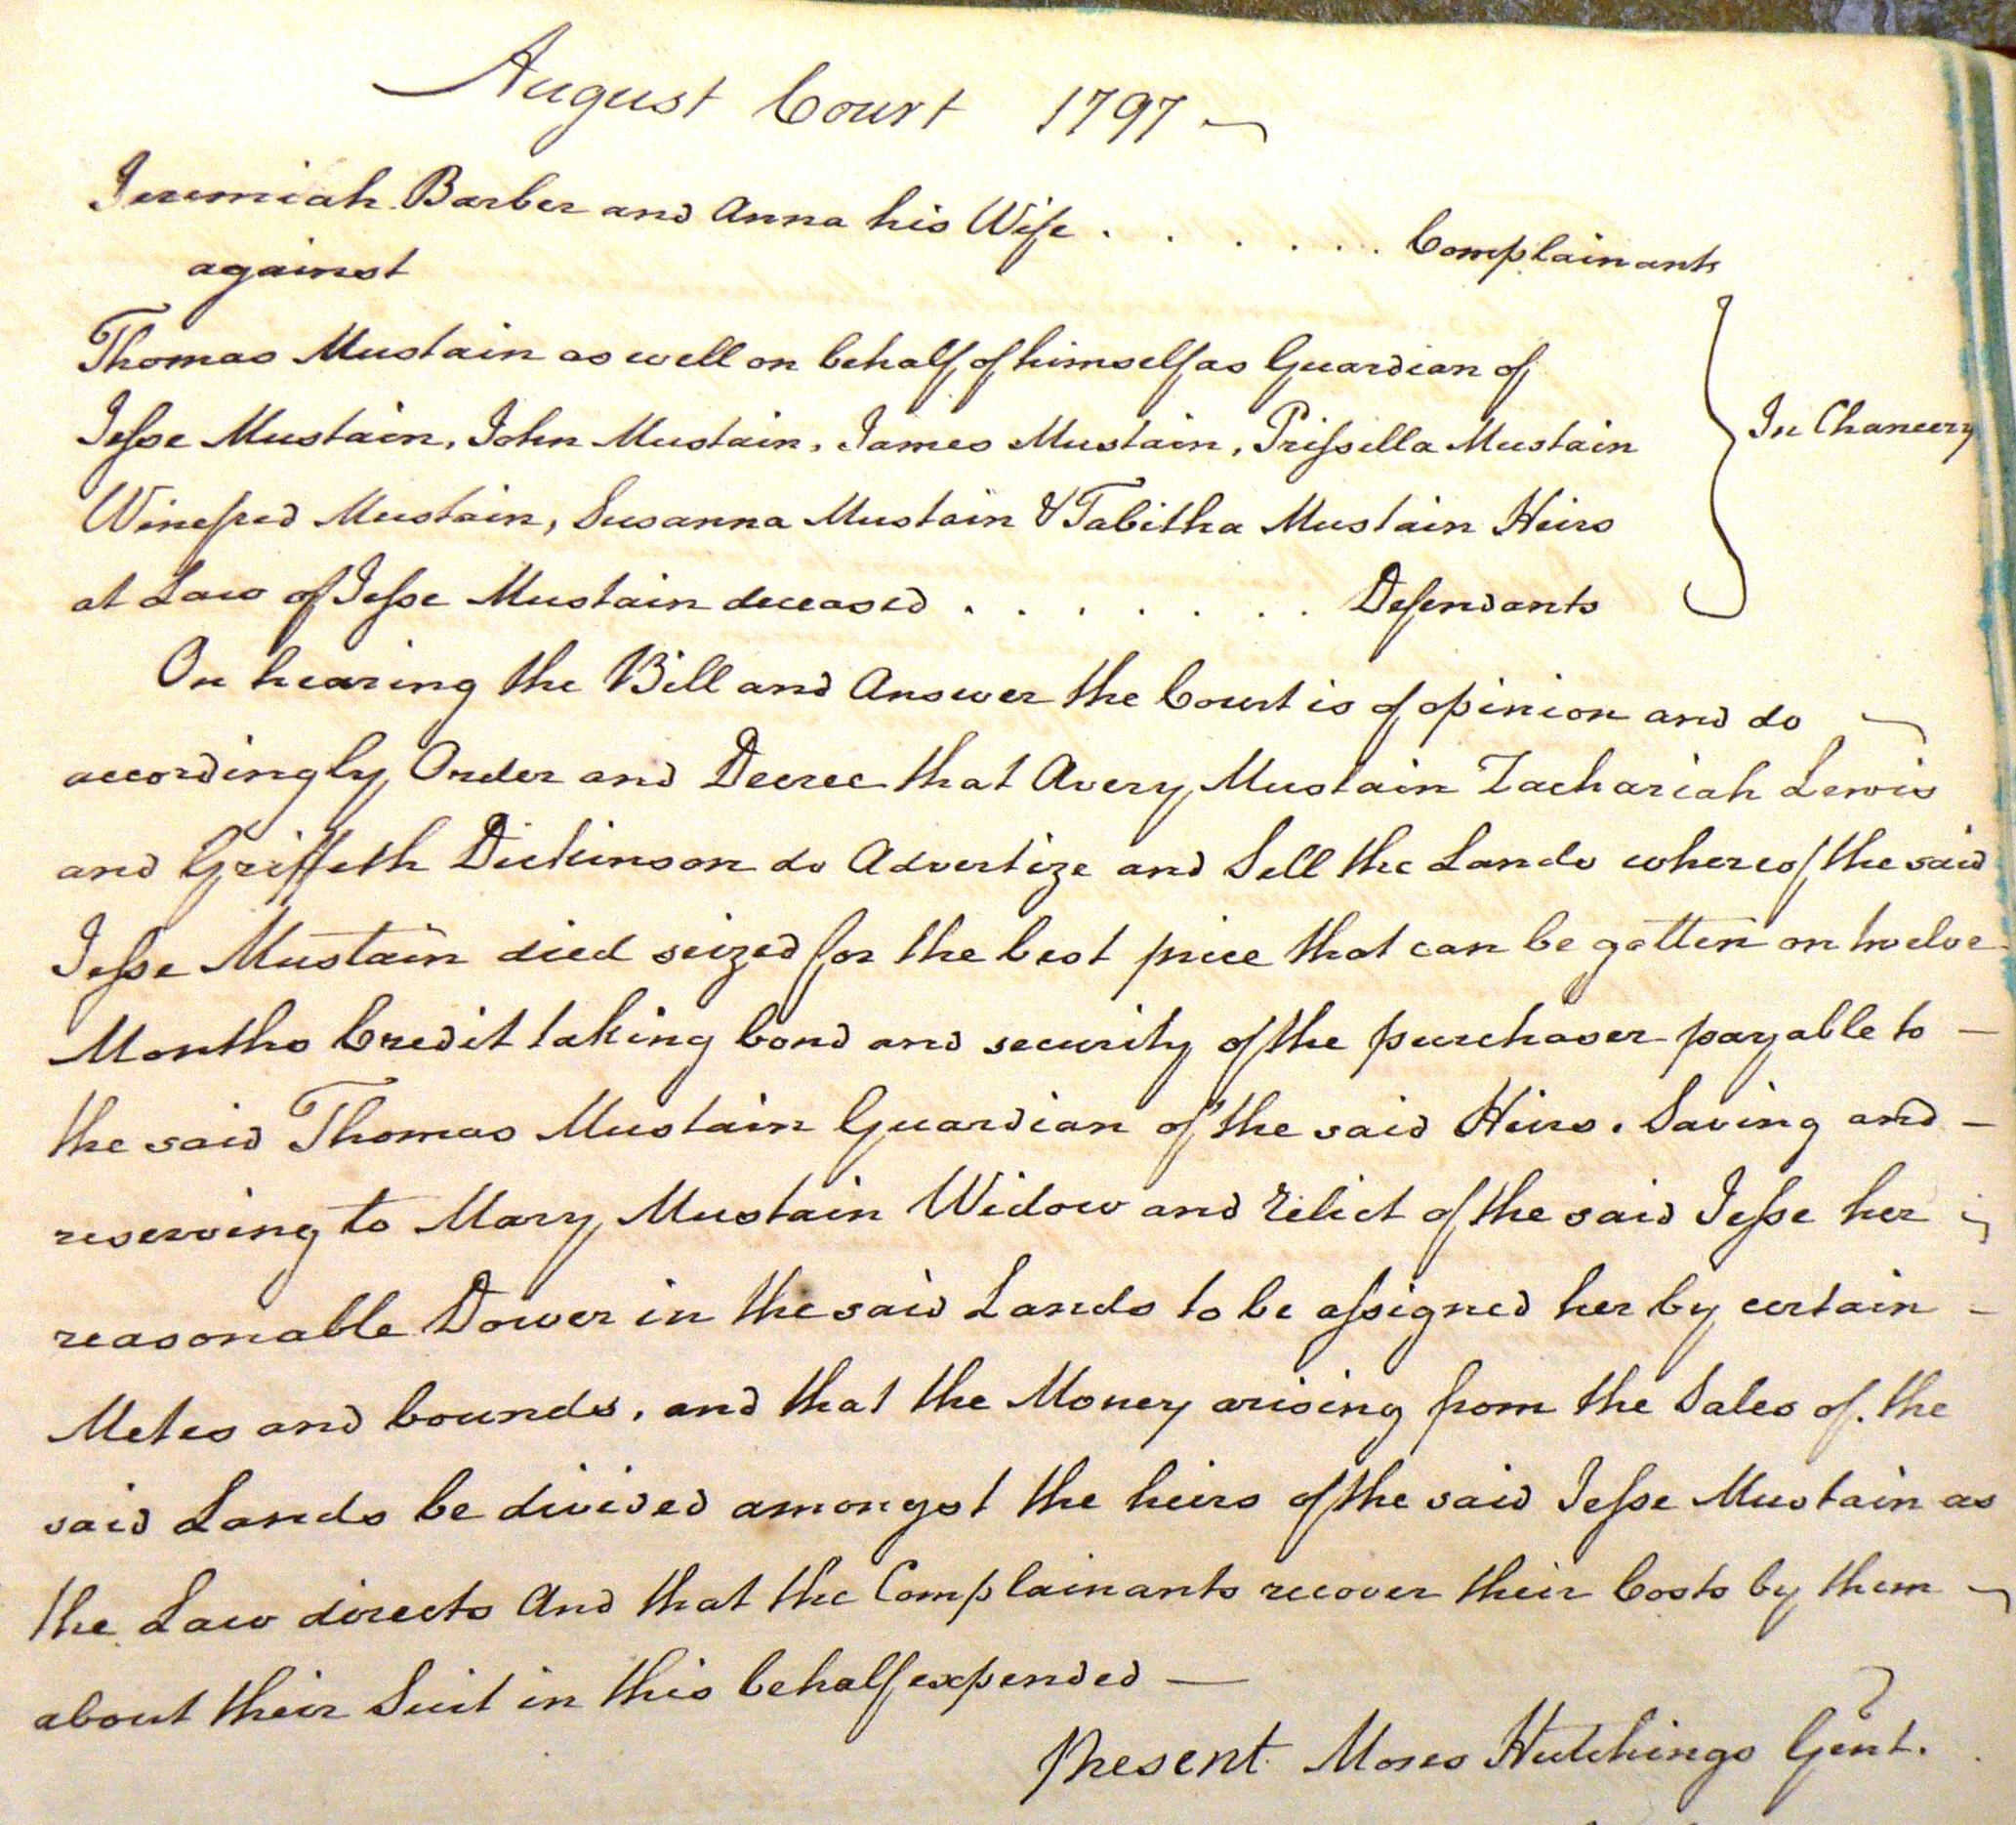 August Court 1797 ~
Jeremiah Barber and Anna his Wife . . . . . . . Complainants
against
Thomas Mustain as well on behalf of himself as Guardian of
Jesse Mustain, John Mustain, James Mustain, Prissilla Mustain
In Chancery
Winefred Mustain, Susanna Mustain & Tabitha Mustain Heirs
at Law of Jesse Mustain deceased . . . . . . . Defendants
On hearing the Bill and Answer the Court is of opinion and do ~
accordingly Order and Decree that Avery Mustain Zachariah Lewis
and Griffeth Dickinson do Advertize and Sell the Lands whereof the said
Jesse Mustain died seized for the best price that can be gotten on twelve
Months Credit taking bond and security of the purchaser payable to –
the said Thomas Mustain Guardian of the said Heirs. Saving and –
reserving to Mary Mustain Widow and relict of the said Jesse her ~
reasonable Dower in the said Lands to be assigned her by certain –
Metes and bounds, and that the Money arising from the Sales of the
said Lands be divided amongst the heirs of the said Jesse Mustain as
the Law directs And that the Complainants recover their Costs by them ~
about their Suit in this behalf expended —
Present Moses Hutchings Gent.